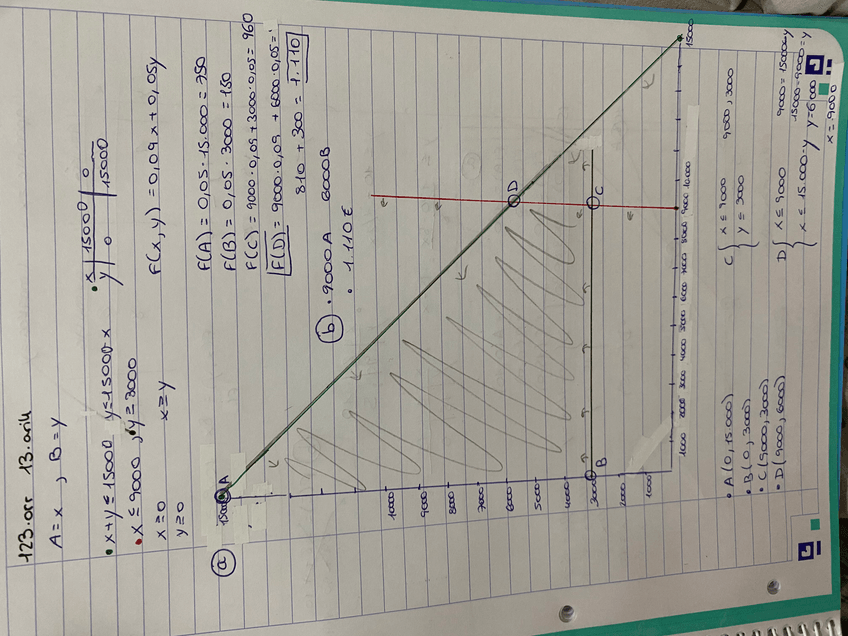 123.orr 13.arik
A=x , B=y
• x+y≤15000 y≤15000-x
• x | 15000 | 0
y | 0 | 15000
• x≤9000 , y≥3000
x≥0 x≥y
y≥0
F(x,y)=0,09x+0,05y
F(A)=0,05·15.000=750
F(B)=0,05·3000=150
F(C)=9000·0,09+3000·0,05=960
F(D)=9000·0,09+6000·0,05=
810+300=1.110
b • 9000A 6000B
• 1.110€
a
15000 A
10000
9000
8000
7000
6000
5000
4000
3000 B
2000
1000
D
C
1000 2000 3000 4000 5000 6000 7000 8000 9000 10000 15000
• A(0,15.000)
• B(0,3000)
• C(9000,3000)
• D(9000,6000)
C { x≤9000 9000,3000
y≥3000
D { x≤9000 9000=15000-y
x≤15.000-y 15000-9000=y
y=6000
x=9000